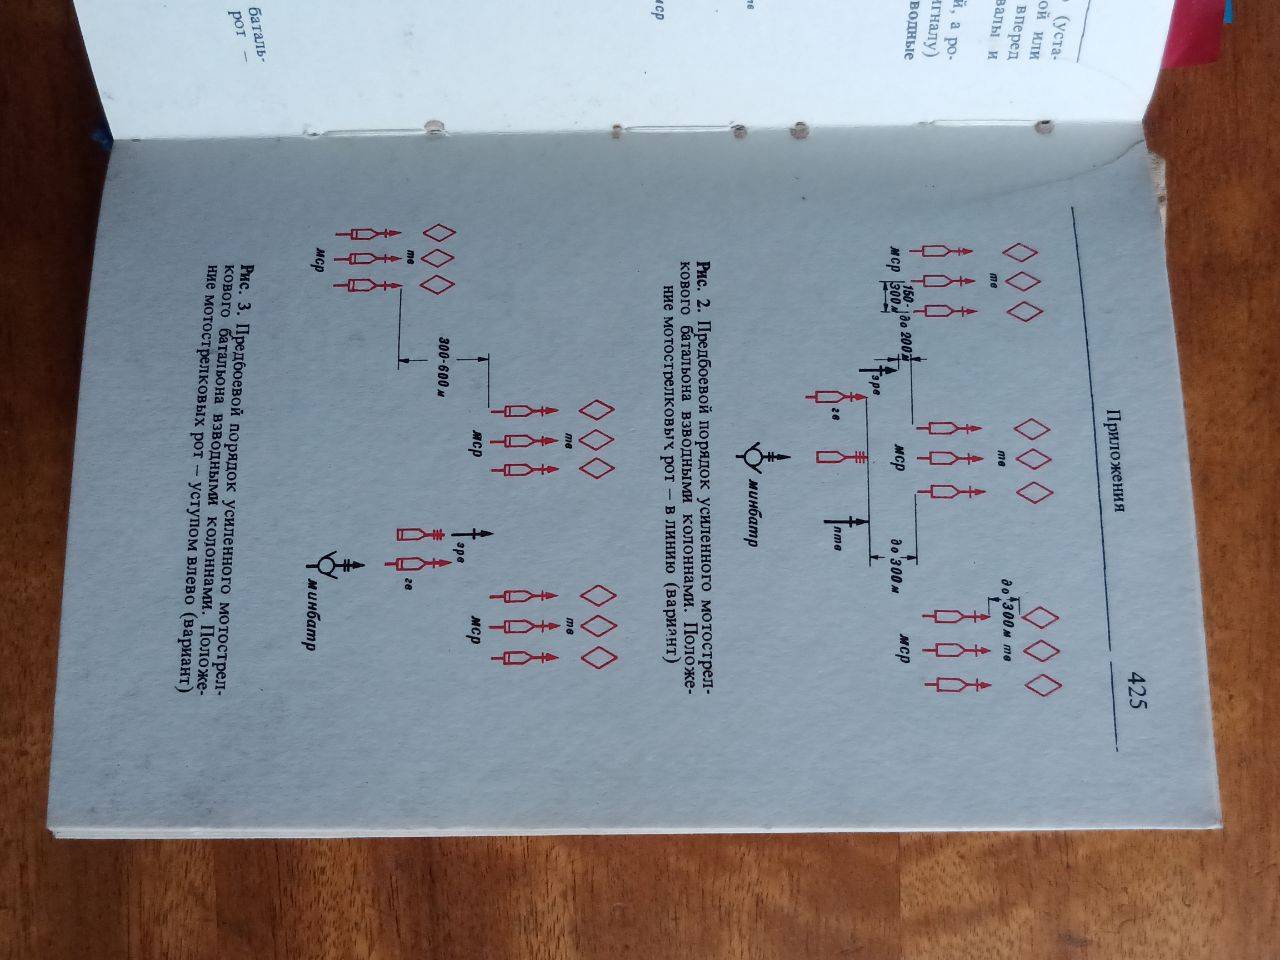 (уста-
ой или
вперед
валы и
й, а ро-
игналу)
водные
тв
мср
баталь-
рот –
Приложения 425
тв
мср
150-
300 м
до 200 м
зрв
гв
тв
мср
птв
до 300 м
до 300 м
тв
мср
минбатр
Рис. 2. Предбоевой порядок усиленного мотострел-
кового батальона взводными колоннами. Положе-
ние мотострелковых рот – в линию (вариант)
тв
мср
300-600 м
тв
мср
зрв
гв
тв
мср
минбатр
Рис. 3. Предбоевой порядок усиленного мотострел-
кового батальона взводными колоннами. Положе-
ние мотострелковых рот – уступом влево (вариант)